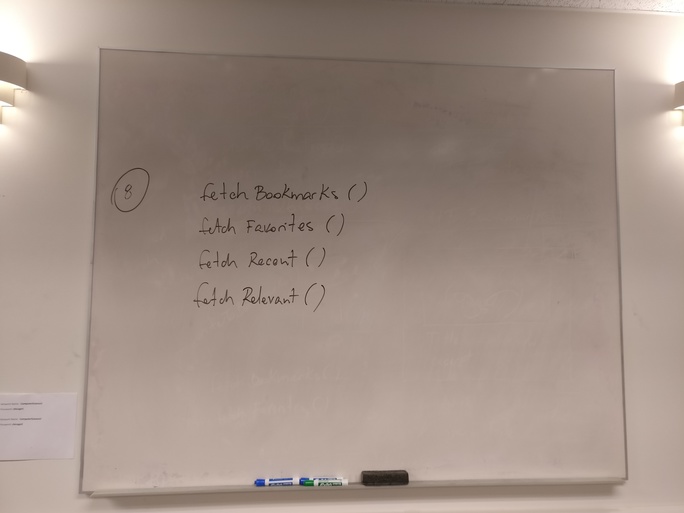 8
fetch Bookmarks ()
fetch Favorites ()
fetch Recent ()
fetch Relevant ()